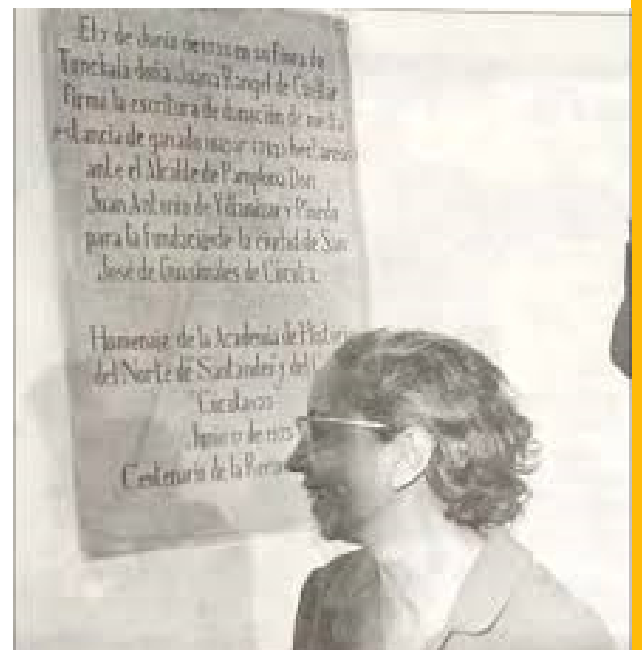 El 17 de Junio de 1733 en su finca de
Tonchalá doña Juana Rangel de Cuéllar
Firma la escritura de donación de media
estancia de ganado mayor (782 hectáreas)
ante el Alcalde de Pamplona Don
Juan Antonio de Villamizar y Pineda
para la fundación de la ciudad de San
José de Guasimales de Cúcuta.
Homenaje de la Academia de Historia
del Norte de Santander y del
Junio 17 de 1975
Centenario de la